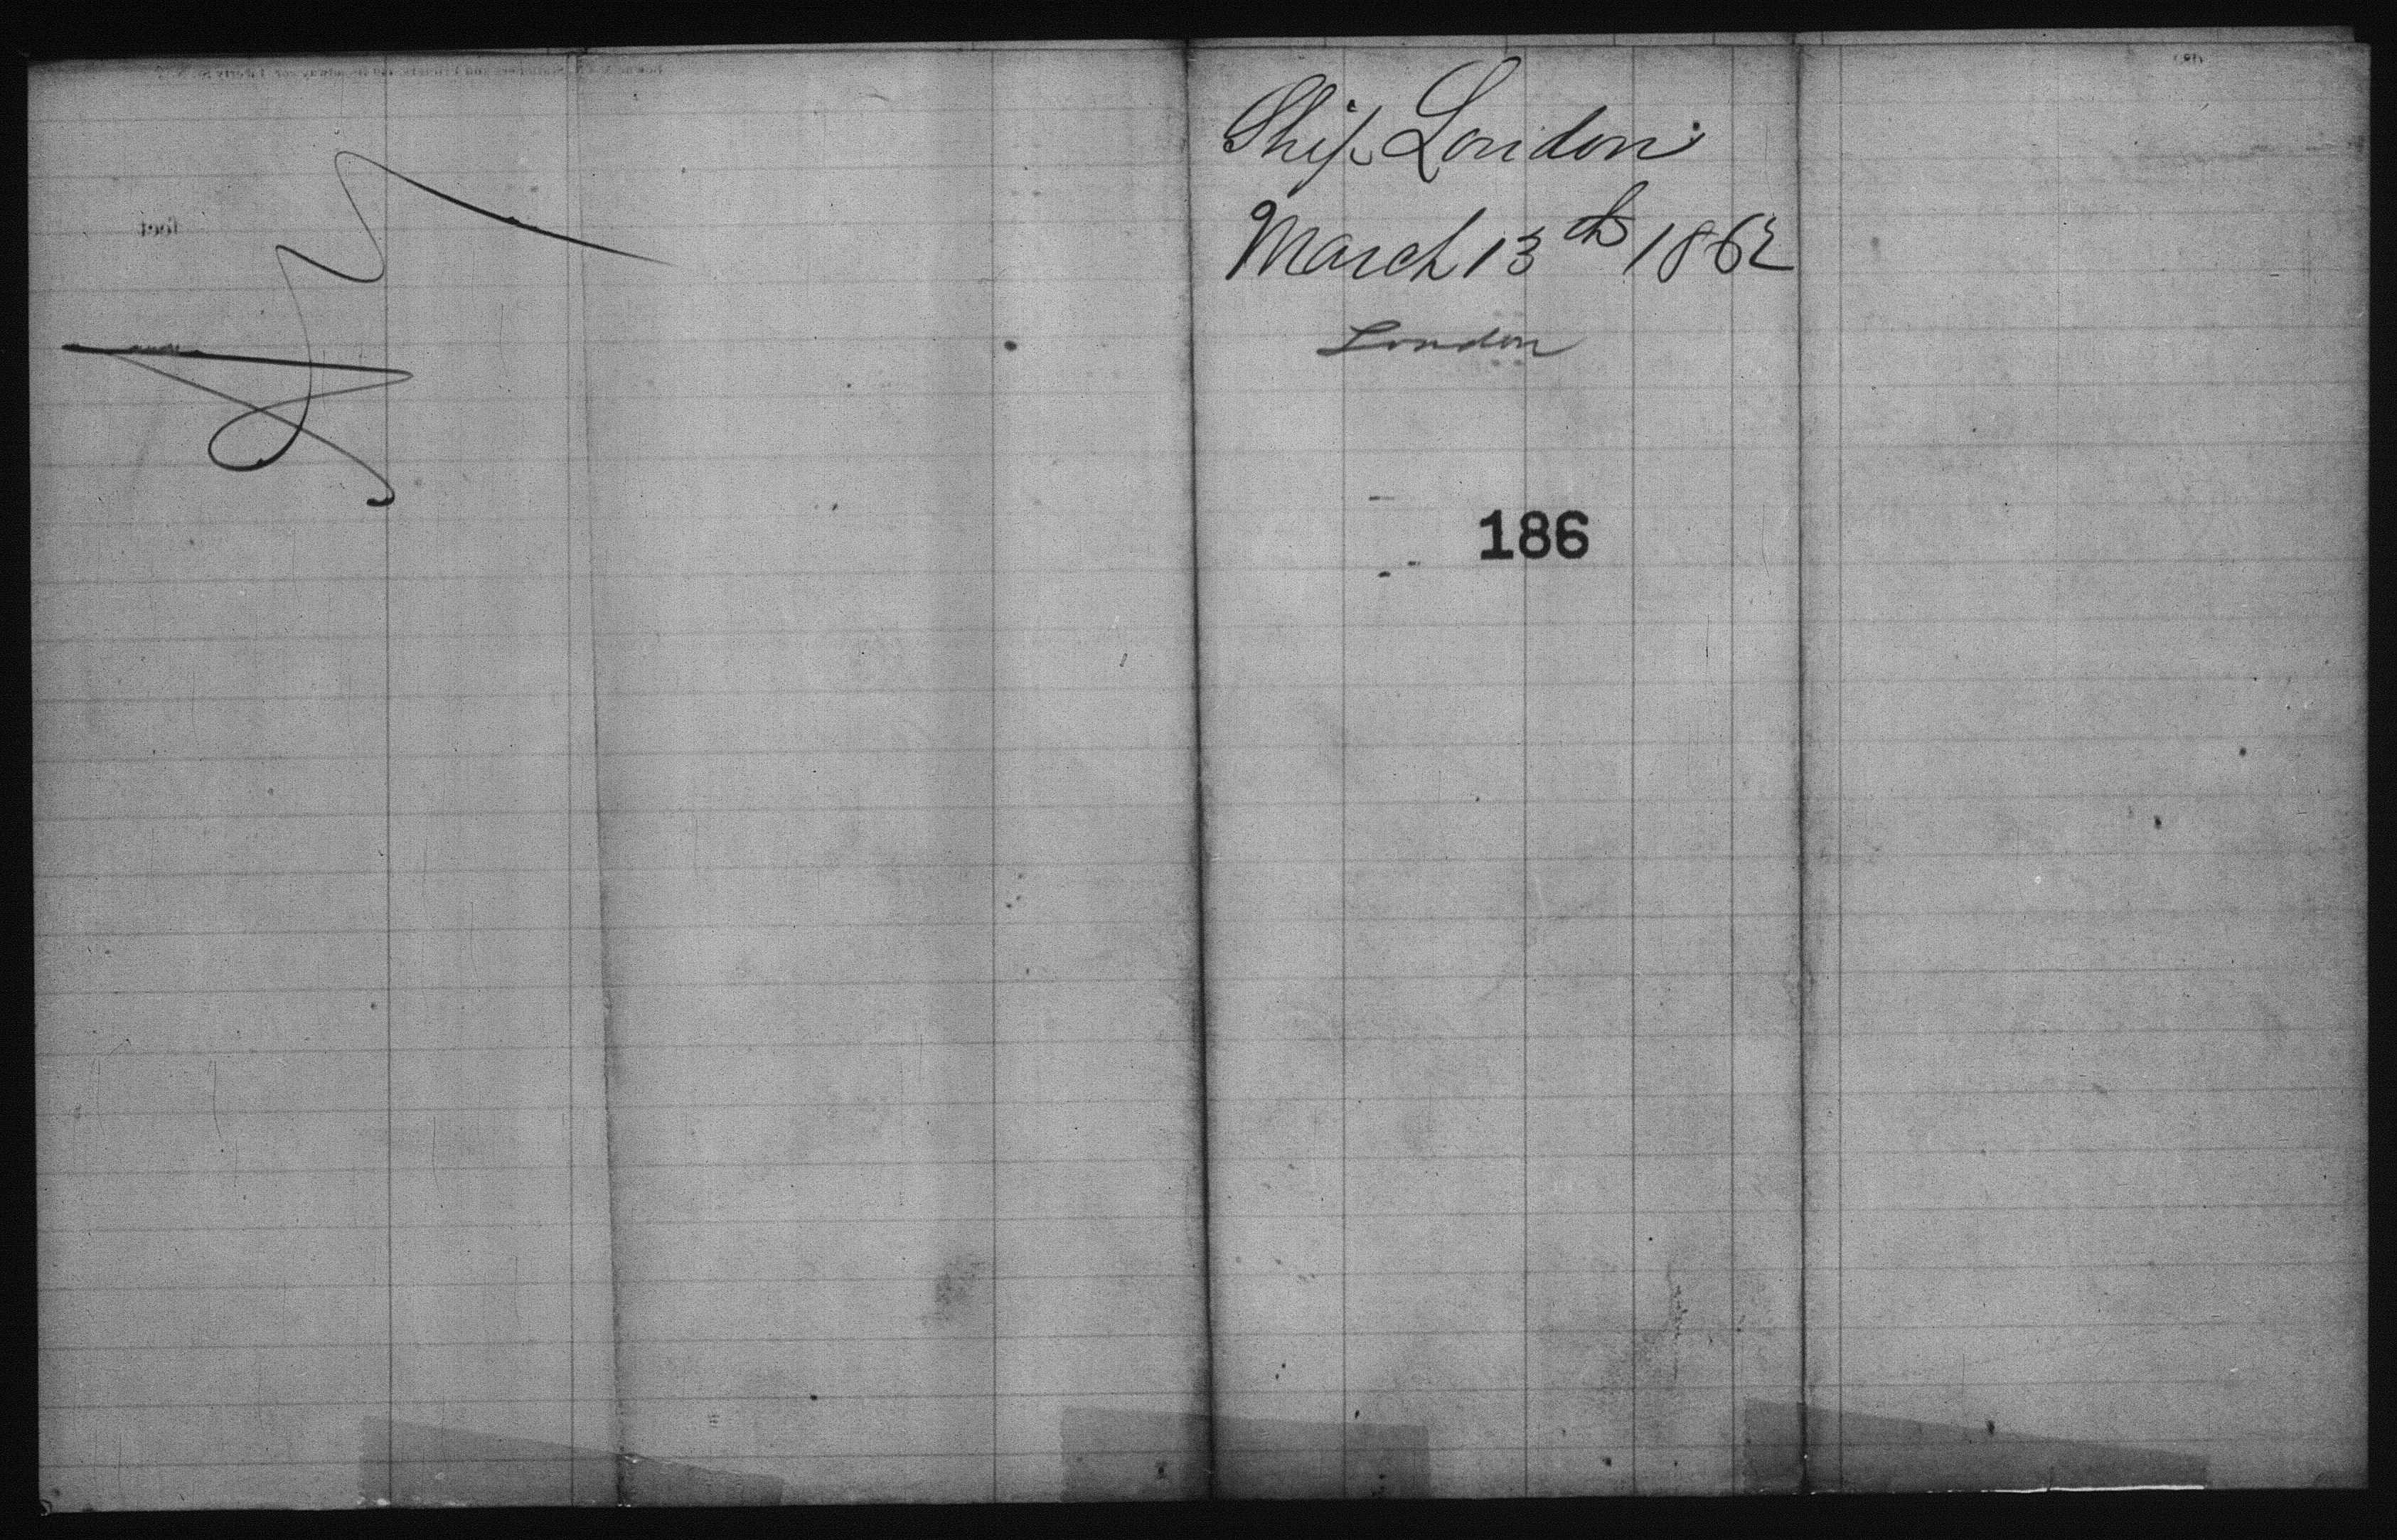 Ship London
March 13th 1862
London
186